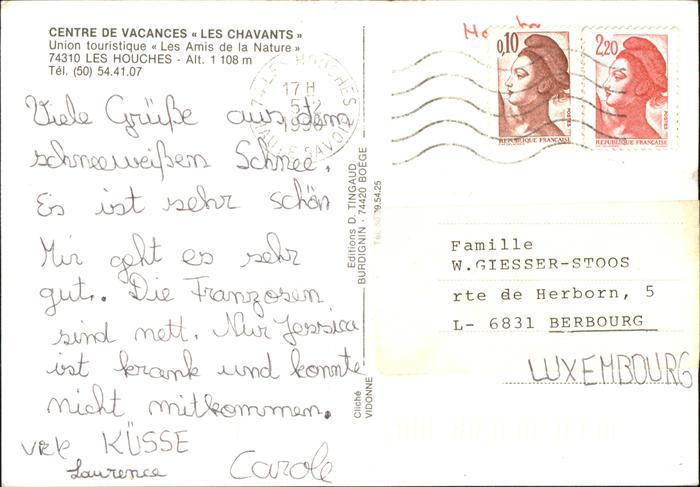 CENTRE DE VACANCES « LES CHAVANTS »
Union touristique « Les Amis de la Nature »
74310 LES HOUCHES - Alt. 1 108 m
Tél. (50) 54.41.07
74 LES HOUCHES
17 H
5-2
1990
HAUTE SAVOIE
0,10
POSTES
REPUBLIQUE FRANÇAISE
2,20
POSTES
REPUBLIQUE FRANÇAISE
Viele Grüße aus dem
schneeweißem Schnee.
Es ist sehr schön
Mir geht es sehr
gut.. Die Franzosen
sind nett. Nur Jessica
ist krank und konnte
nicht mitkommen.
viele KÜSSE
Laurence Carole
Editions D. TINGAUD
BURDIGNIN - 74420 BOËGE
Cliché
VIDONNE
Famille
W.GIESSER-STOOS
rte de Herborn, 5
L- 6831 BERBOURG
LUXEMBOURG